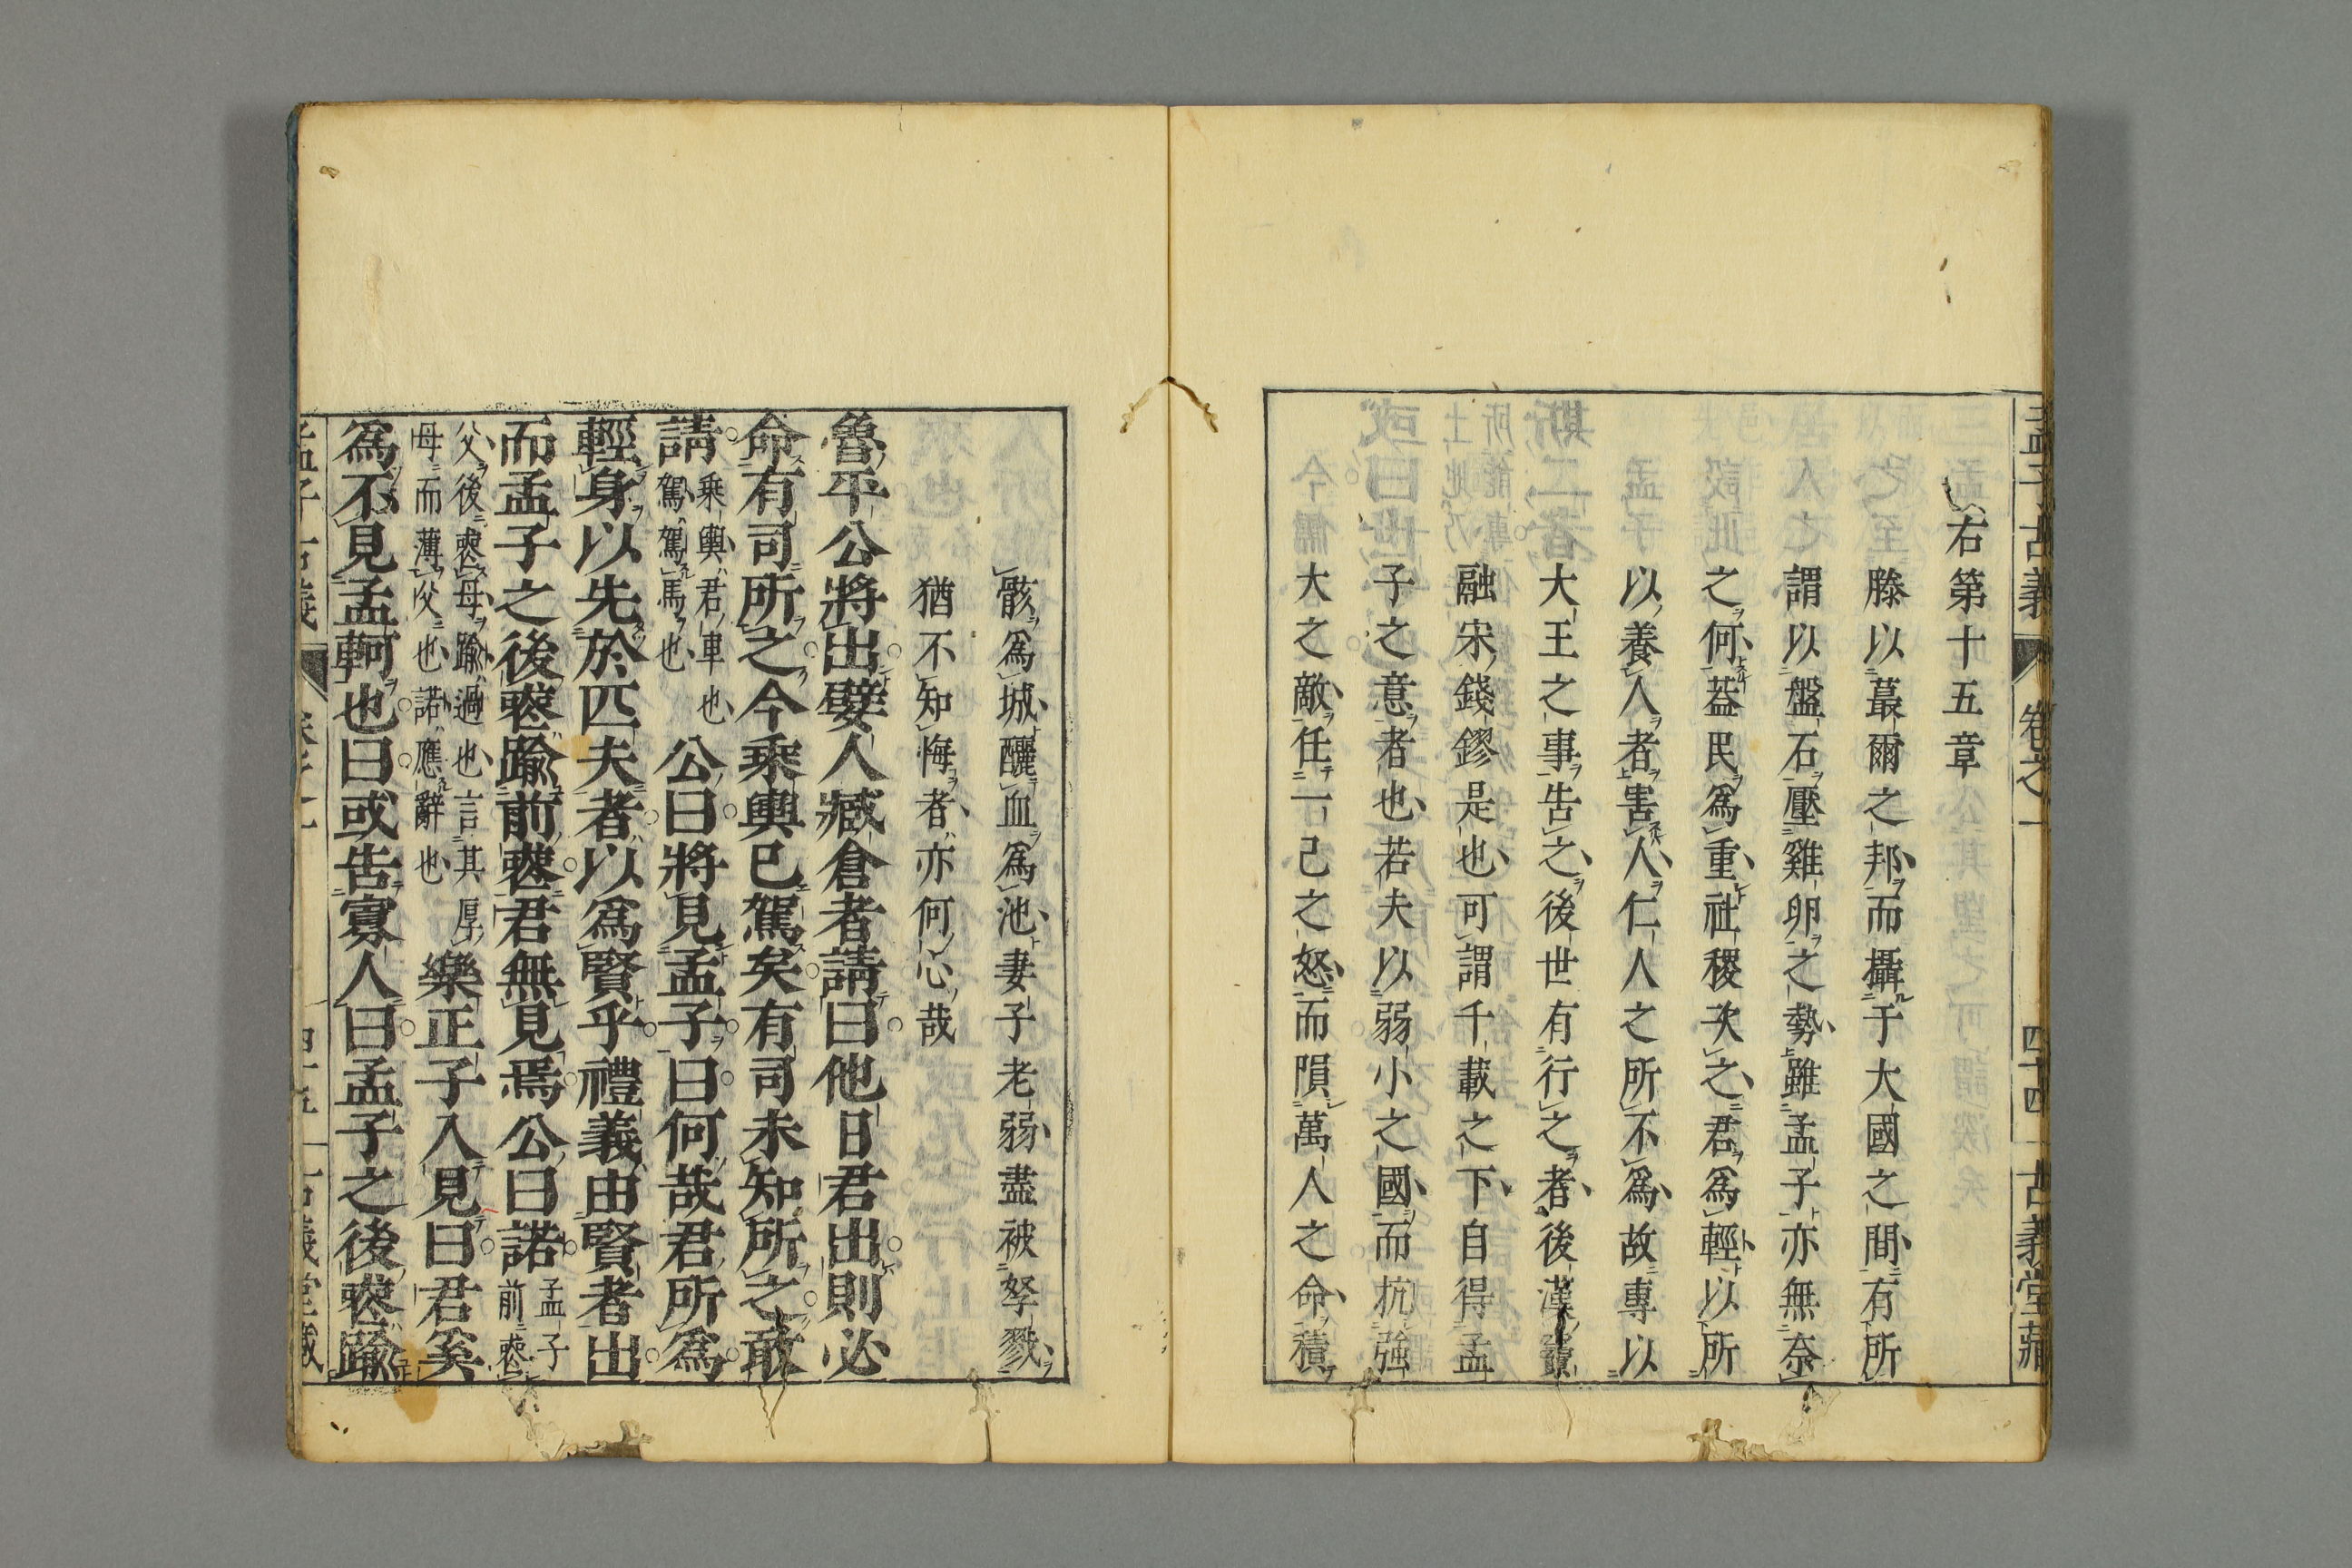 孟子古義 卷之一 四十四 古義堂藏
右第十五章
滕以蕞爾之邦而攝于大國之間有所
謂以盤石壓雞卵之勢雖孟子亦無奈
之何葢民爲重社稷次之君爲輕以所
以養人者害人仁人之所不爲故專以
大王之事告之後世有行之者後漢竇
融宋錢鏐是也可謂千載之下自得孟
子之意者也若夫以弱小之國而抗強
大之敵任一己之怒而隕萬人之命積
骸爲城釃血爲池妻子老弱盡被拏戮
猶不知悔者亦何心哉
魯平公將出嬖人臧倉者請曰他日君出則必
命有司所之今乘輿已駕矣有司未知所之敢
請乘輿君車也駕駕馬也公曰將見孟子曰何哉君所爲
輕身以先於匹夫者以爲賢乎禮義由賢者出
而孟子之後喪踰前喪君無見焉公曰諾孟子前喪
父後喪母踰過也言其厚母而薄父也諾應辭也樂正子入見曰君奚
爲不見孟軻也曰或告寡人曰孟子之後喪踰